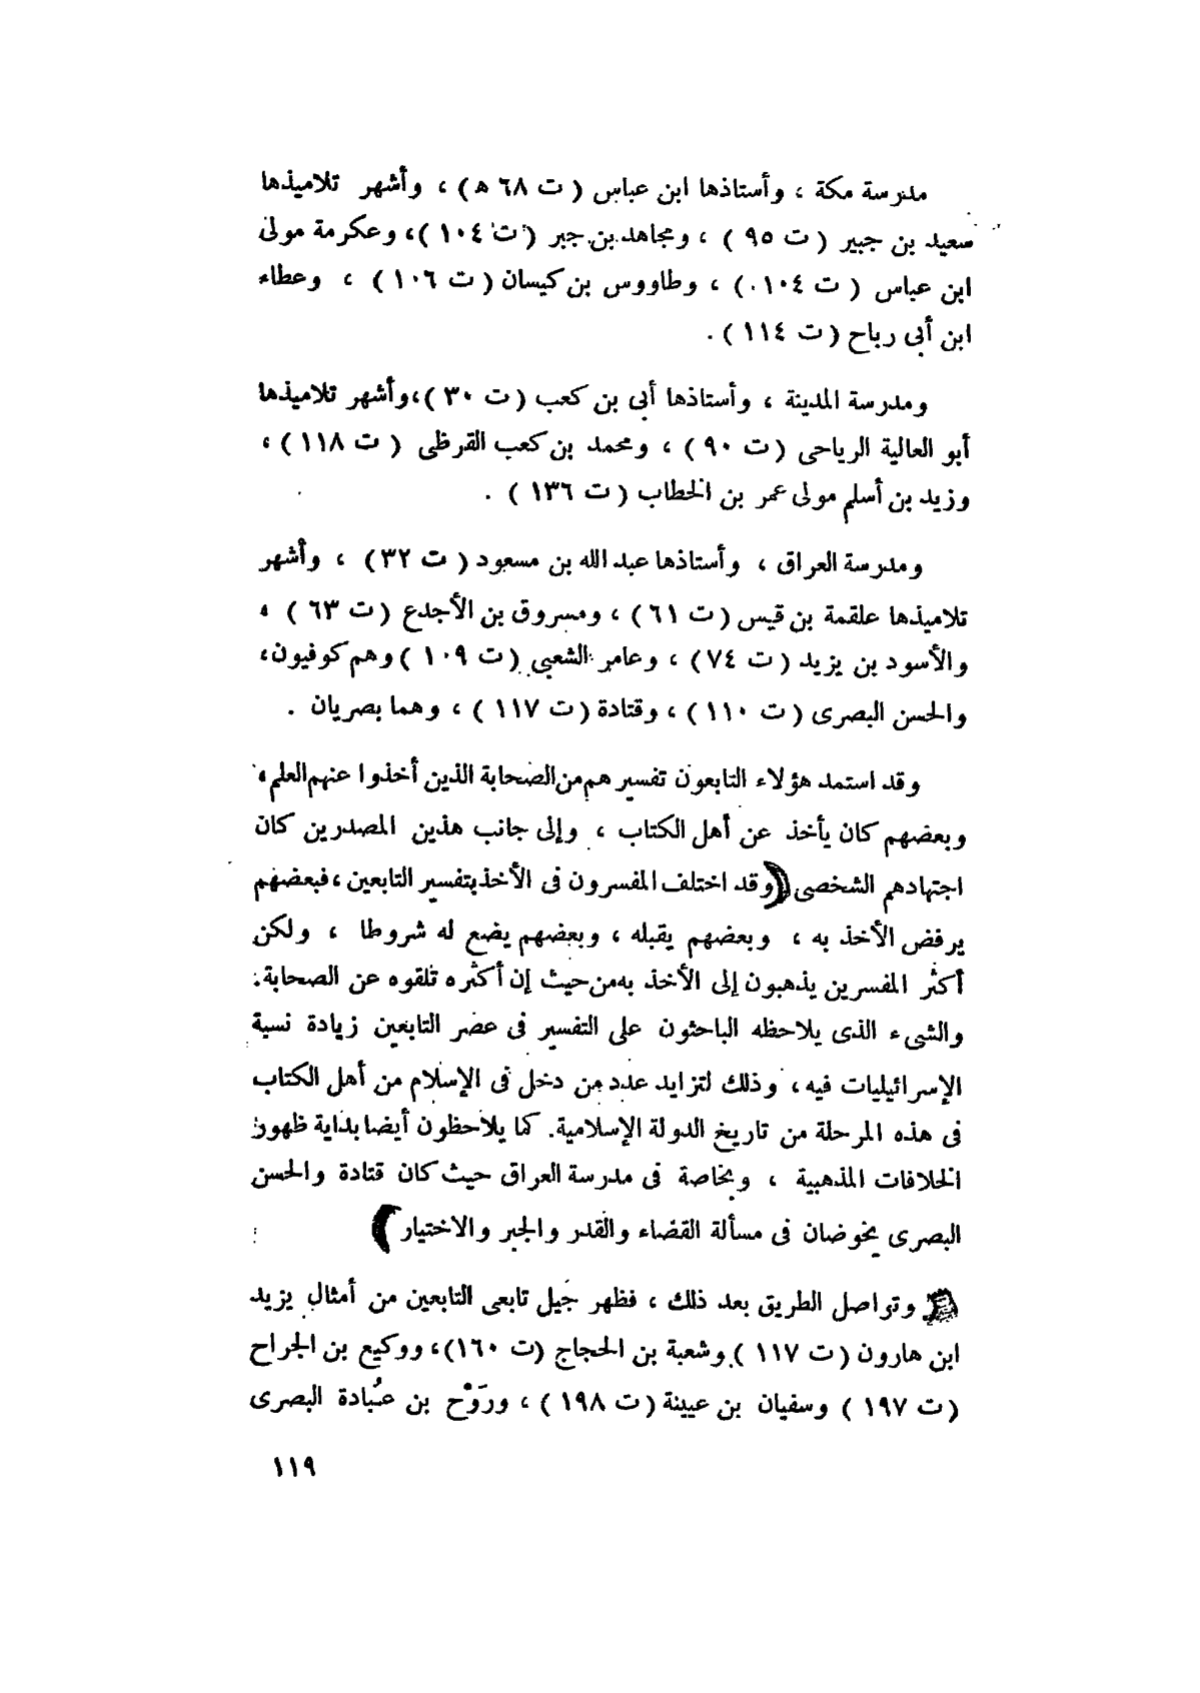 مدرسة مكة ، وأستاذها ابن عباس ( ت ٦٨ ه ) ، وأشهر تلاميذها
سعيد بن جبير ( ت ٩٥ ) ، ومجاهد بن جبر ( ت ١٠٤ ) ، وعكرمة مولى
ابن عباس ( ت ١٠٤ ) ، وطاووس بن كيسان ( ت ١٠٦ ) ، وعطاء
ابن أبى رباح ( ت ١١٤ ) .
ومدرسة المدينة ، وأستاذها أبى بن كعب ( ت ٣٠ ) ، وأشهر تلاميذها
أبو العالية الرياحى ( ت ٩٠ ) ، ومحمد بن كعب القرظى ( ت ١١٨ ) ،
وزيد بن أسلم مولى عمر بن الخطاب ( ت ١٣٦ ) .
ومدرسة العراق ، وأستاذها عبد الله بن مسعود ( ت ٣٢ ) ، وأشهر
تلاميذها علقمة بن قيس ( ت ٦١ ) ، ومسروق بن الأجدع ( ت ٦٣ ) ،
والأسود بن يزيد ( ت ٧٤ ) ، وعامر الشعبى ( ت ١٠٩ ) وهم كوفيون ،
والحسن البصرى ( ت ١١٠ ) ، وقتادة ( ت ١١٧ ) ، وهما بصريان .
وقد استمد هؤلاء التابعون تفسيرهم من الصحابة الذين أخذوا عنهم العلم ،
وبعضهم كان يأخذ عن أهل الكتاب ، وإلى جانب هذين المصدرين كان
اجتهادهم الشخصى ( وقد اختلف المفسرون فى الأخذ بتفسير التابعين ، فبعضهم
يرفض الأخذ به ، وبعضهم يقبله ، وبعضهم يضع له شروطا ، ولكن
أكثر المفسرين يذهبون إلى الأخذ به من حيث إن أكثره تلقوه عن الصحابة .
والشىء الذى يلاحظه الباحثون على التفسير فى عصر التابعين زيادة نسبة
الإسرائيليات فيه ، وذلك لتزايد عدد من دخل فى الإسلام من أهل الكتاب
فى هذه المرحلة من تاريخ الدولة الإسلامية . كما يلاحظون أيضا بداية ظهور
الخلافات المذهبية ، وبخاصة فى مدرسة العراق حيث كان قتادة والحسن
البصرى يخوضان فى مسألة القضاء والقدر والجبر والاختيار )
وتواصل الطريق بعد ذلك ، فظهر جيل تابعى التابعين من أمثال يزيد
ابن هارون ( ت ١١٧ ) وشعبة بن الحجاج ( ت ١٦٠ ) ، ووكيع بن الجراح
( ت ١٩٧ ) وسفيان بن عيينة ( ت ١٩٨ ) ، ورَوْح بن عُبادة البصرى
١١٩